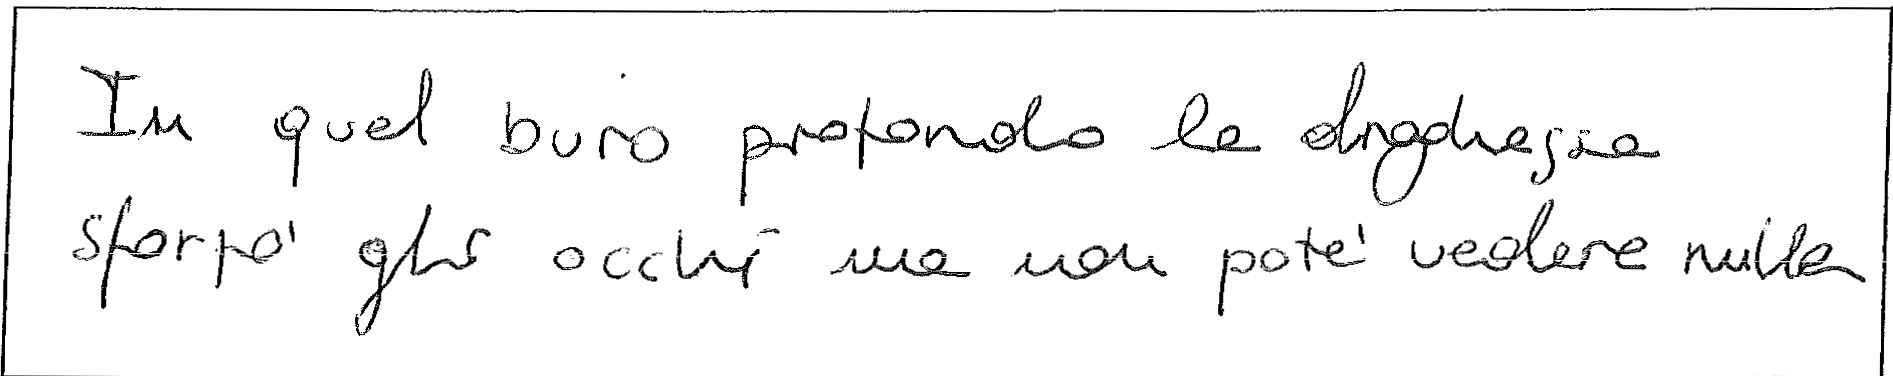 In quel buio profondo la draghessa
sforzo' gli occhi ma non pote' vedere nulla